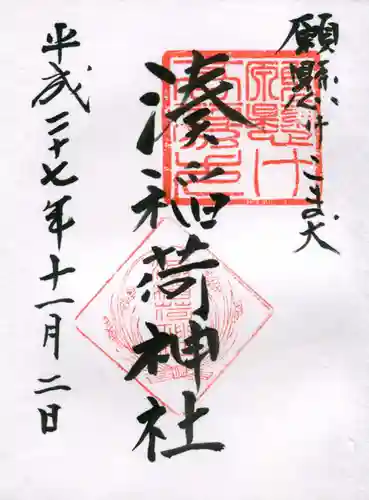 願懸けこま犬
湊稲荷神社
平成二十七年十一月二日